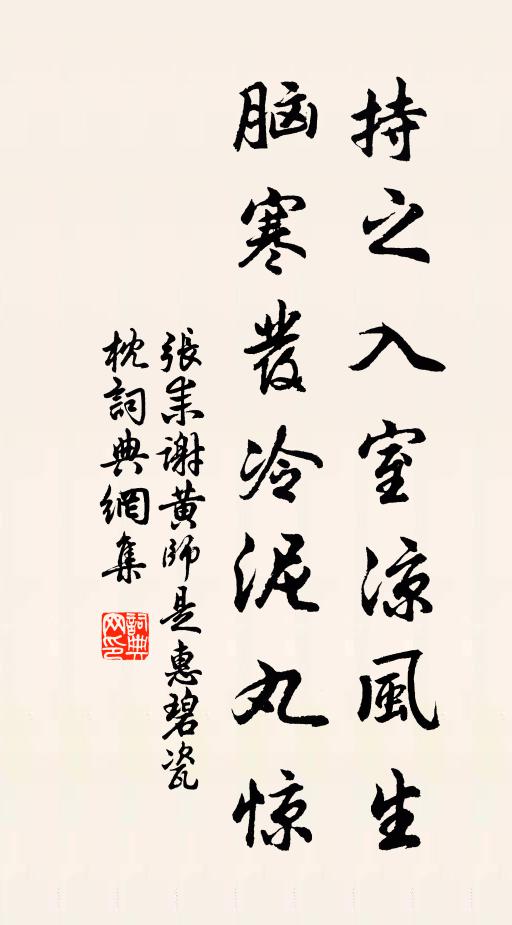 持之入室涼風生
脑寒發冷泥丸惊
張耒謝黄師是惠碧瓷
枕詞典網集
詞典网印